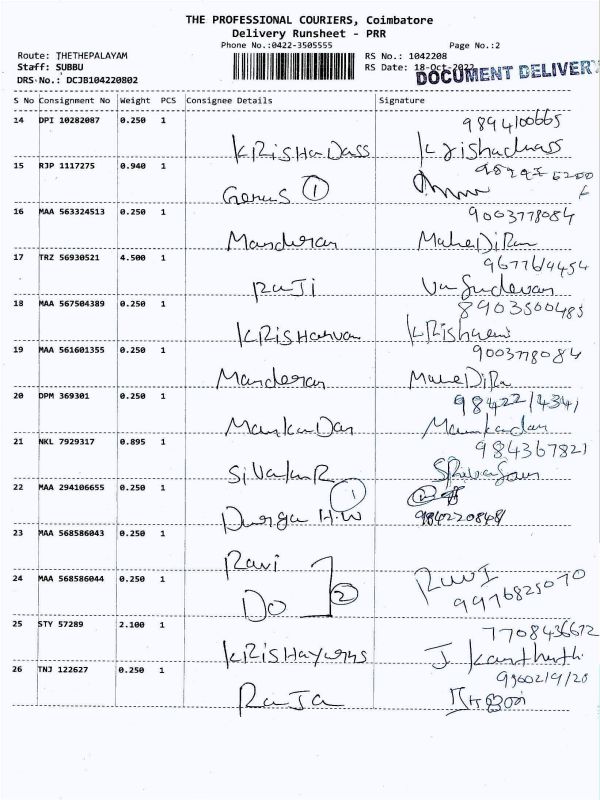 THE PROFESSIONAL COURIERS, Coimbatore
Delivery Runsheet - PRR
Phone No.:0422-3505555 Page No.:2
Route: THETHEPALAYAM RS No.: 1042208
Staff: SUBBU RS Date: 18-Oct-2022
DRS No.: DCJB104220802 DOCUMENT DELIVERY
S No Consignment No Weight PCS Consignee Details Signature
14 DPI 10282087 0.250 1 9894100665
KRisHaDass Krishadass
15 RJP 1117275 0.940 1
Genus 1
16 MAA 563324513 0.250 1 9003778084
Manderan
17 TRZ 56930521 4.500 1 9677614454
RaJi Vasudevan
18 MAA 567504389 0.250 1 8903500485
19 MAA 561601355 0.250 1 9003778084
Manderan
20 DPM 369301 0.250 1 9842214341
ManikanDan Manikandan
21 NKL 7929317 0.895 1 984367821
22 MAA 294106655 0.250 1 1
Durga H.W 9840220848
23 MAA 568586043 0.250 1
Ravi
24 MAA 568586044 0.250 1 Ravi
Do 2 9976825070
25 STY 57289 2.100 1 7708436672
26 TNJ 122627 0.250 1
RaJa ராஜன்